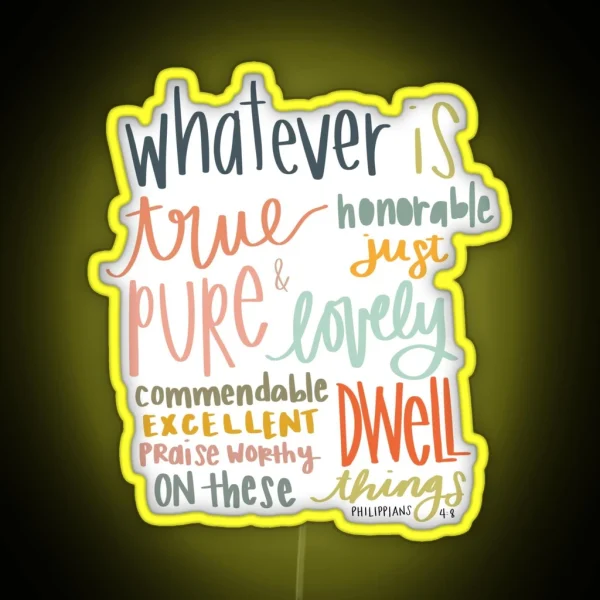 whatever is
true honorable
just
PURE & lovely
commendable
EXCELLENT DWELL
PRaise WORthy
ON these things
PHILIPPIANS 4:8